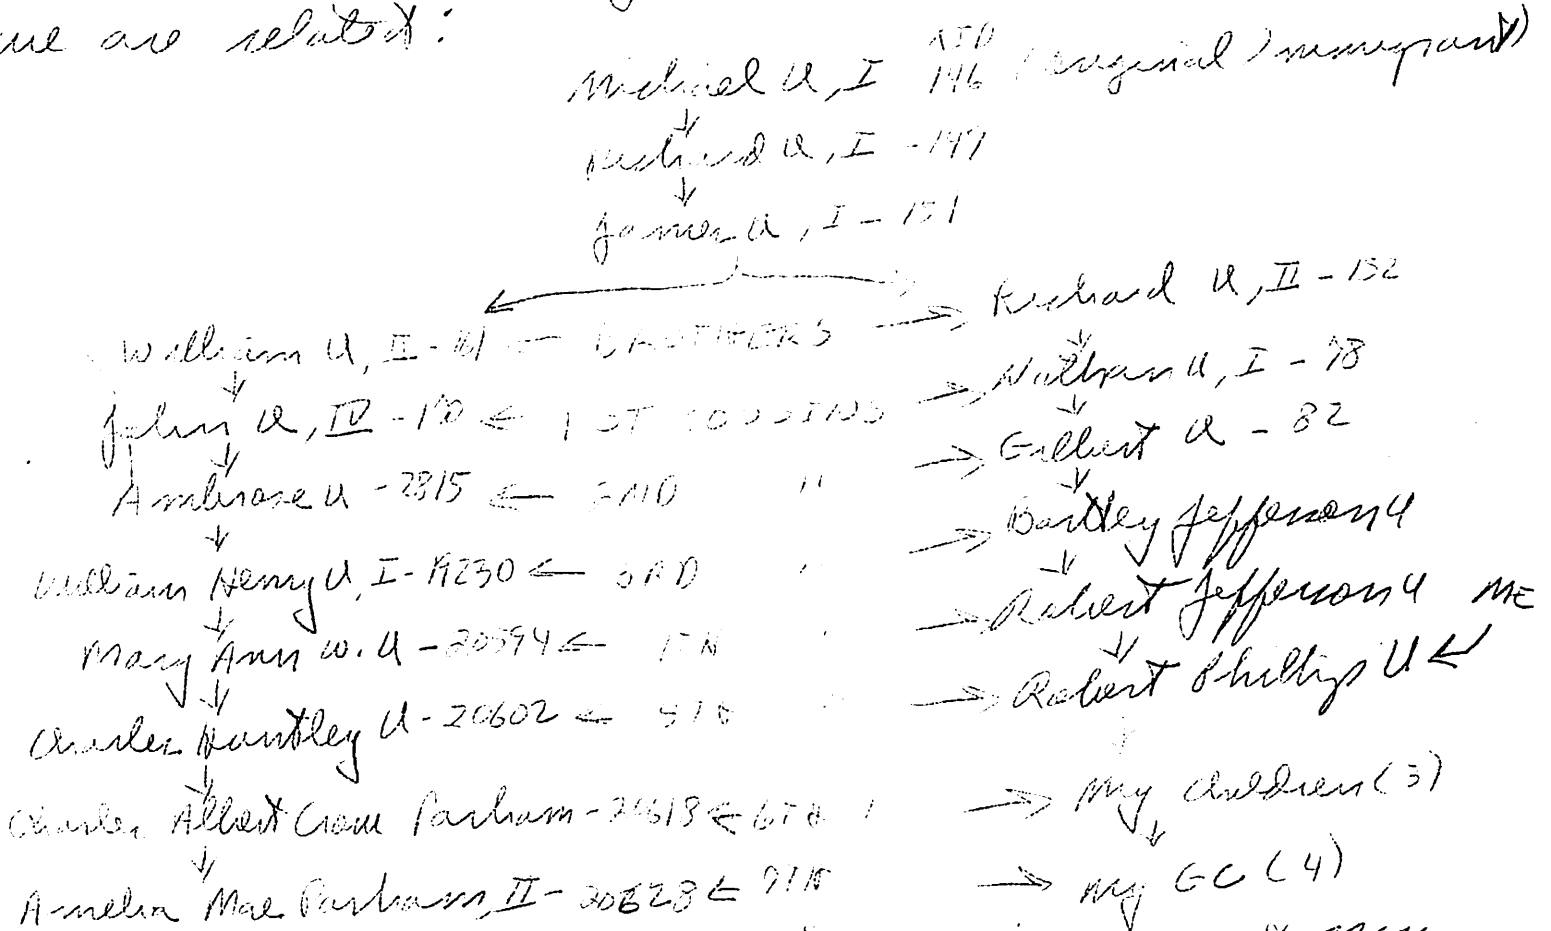 we are related:
RID
Michael U, I 146 (original immigrant)
Richard U, I - 149
James U, I - 151
William U, II - 161 ← BROTHERS → Richard U, II - 152
John U, IV - 170 ← 1ST COUSINS → Nathan U, I - 78
Ambrose U - 2815 ← 2ND " → Gilbert U - 82
William Henry U, I - 19230 ← 3RD " → Bartley Jefferson U
Mary Ann W. U - 20594 ← 4TH " → Robert Jefferson U ME
Charles Huntley U - 20602 ← 5TH " → Robert Phillips U ←
Charles Albert Crow Parham - 20618 ← 6TH " → My children (3)
Amelia Mae Parham, II - 20628 ← 7TH → My GC (4)